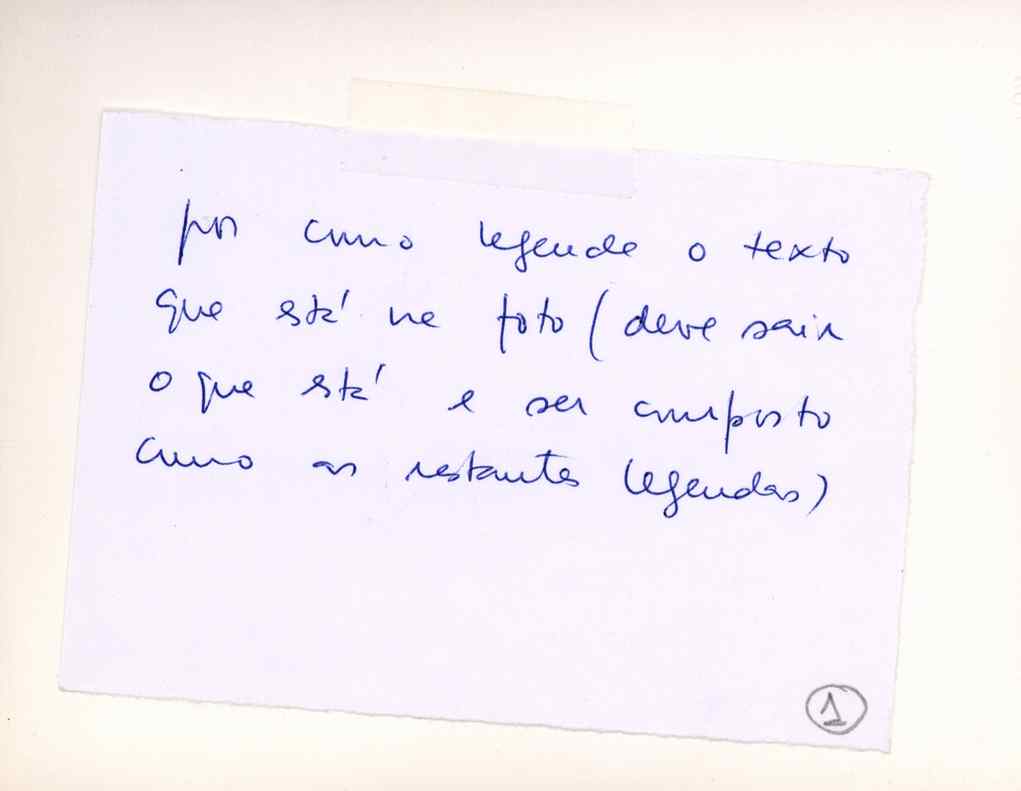 por como legenda o texto
que está na foto (deve sair
o que está e ser composto
como as restantes legendas)
1